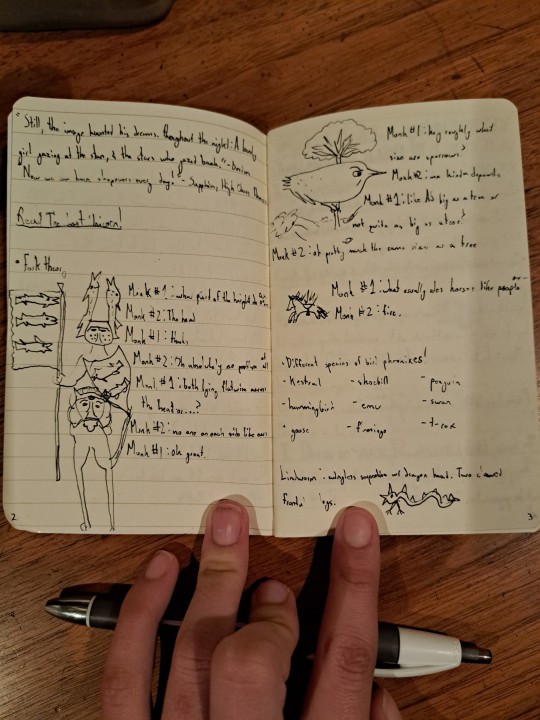 "Still, the image haunted his dreams throughout the night: A lovely
girl gazing at the stars, & the stars who gazed back."
Now we
Sapphire, High
Read The Last Unicorn!
• Fish
Monk #1: what part of the knight do
Monk #2: The head
Monk #1: thanks
Monk #2: Oh absolutely no problem at all
Monk #1: both lying flatwise across
the head or....?
Monk #2: no one on each side like ears
Monk #1: ok great.
2
Monk #1: hey roughly what
size are sparrows?
Monk #2: mm kinda depends
Monk #1: like as big as a tree or
not quite as big as a tree?
Monk #2: oh pretty much the same size as a tree
Monk #1: what usually do horses like
Monk #2: fire.
• Different species of bird phoenixes!
- Kestral
- shoebill
- penguin
- hummingbird
- emu
- swan
- goose
- flamingo
- t-rex
Lindworm: wingless serpent w/ dragon head. Two clawed
front legs.
3